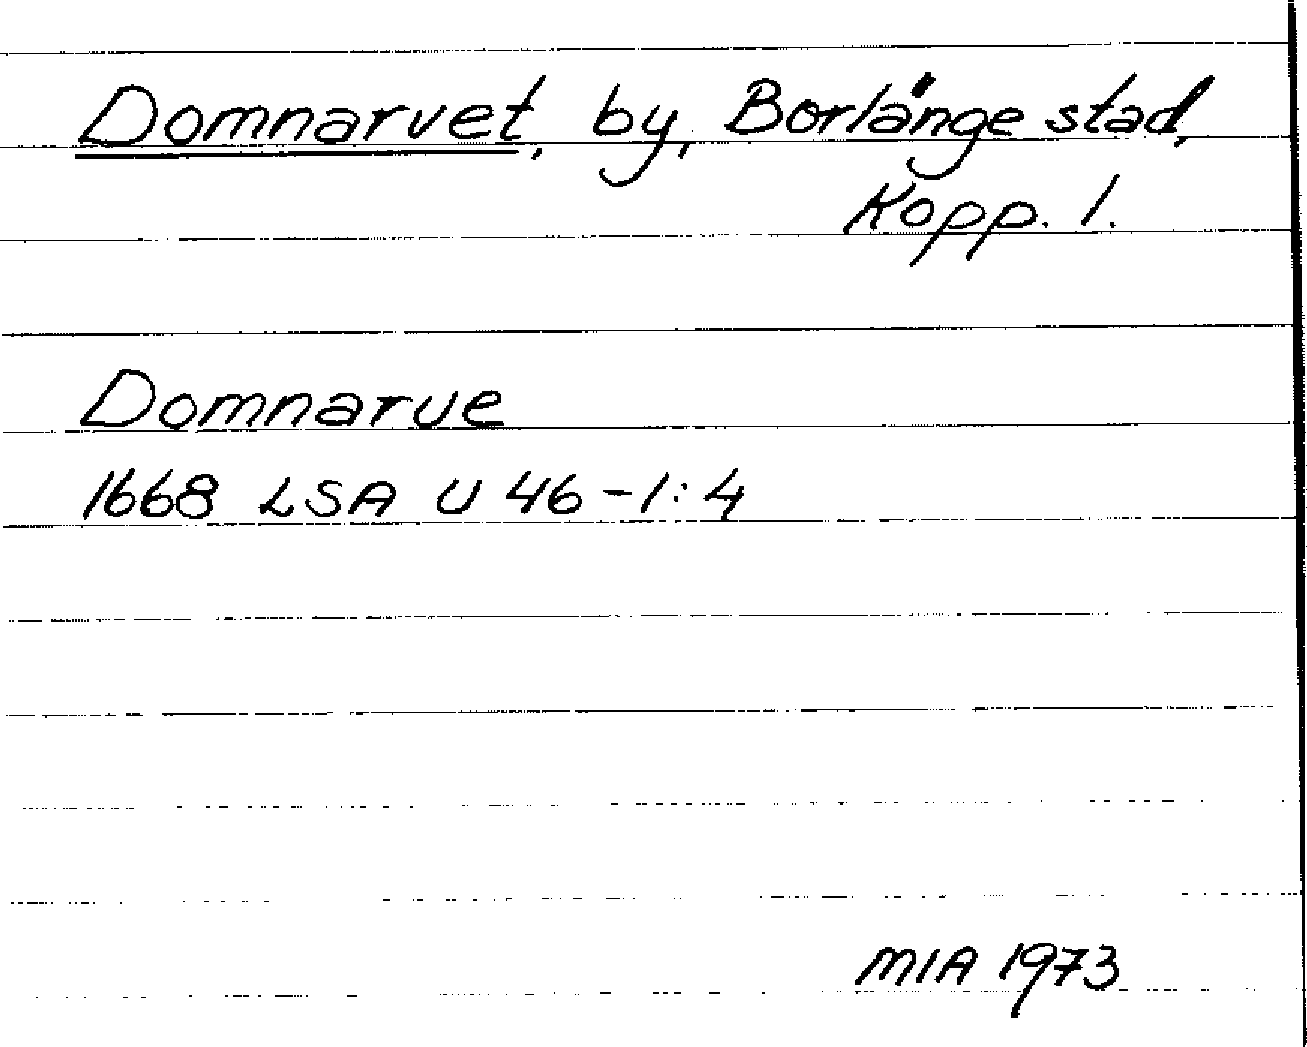 Domnarvet, by, Borlänge stad,
Kopp. l.
Domnarue
1668 LSA U 46-1:4
MIA 1973